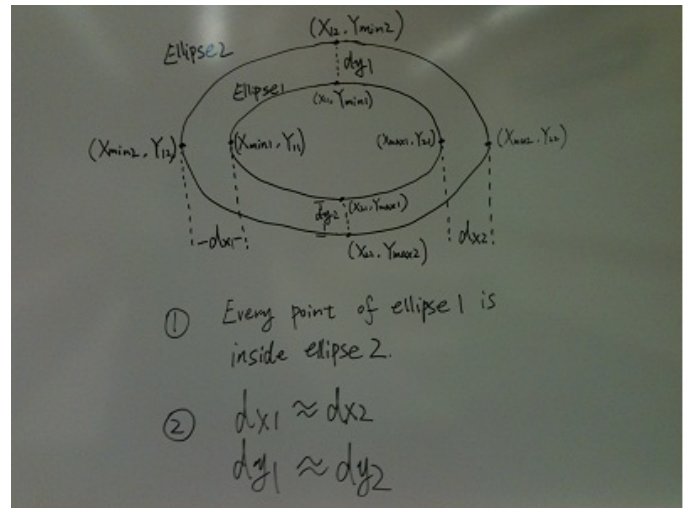 (X12, Ymin2)
Ellipse2
dy1
Ellipse1
(X11, Ymin1)
(Xmin2, Y12)
(Xmin1, Y11)
(Xmax1, Y21)
(Xmax2, Y22)
dy2
(X21, Ymax1)
dx1
(X22, Ymax2)
dx2
① Every point of ellipse 1 is
inside ellipse 2.
② dx1 ≈ dx2
dy1 ≈ dy2